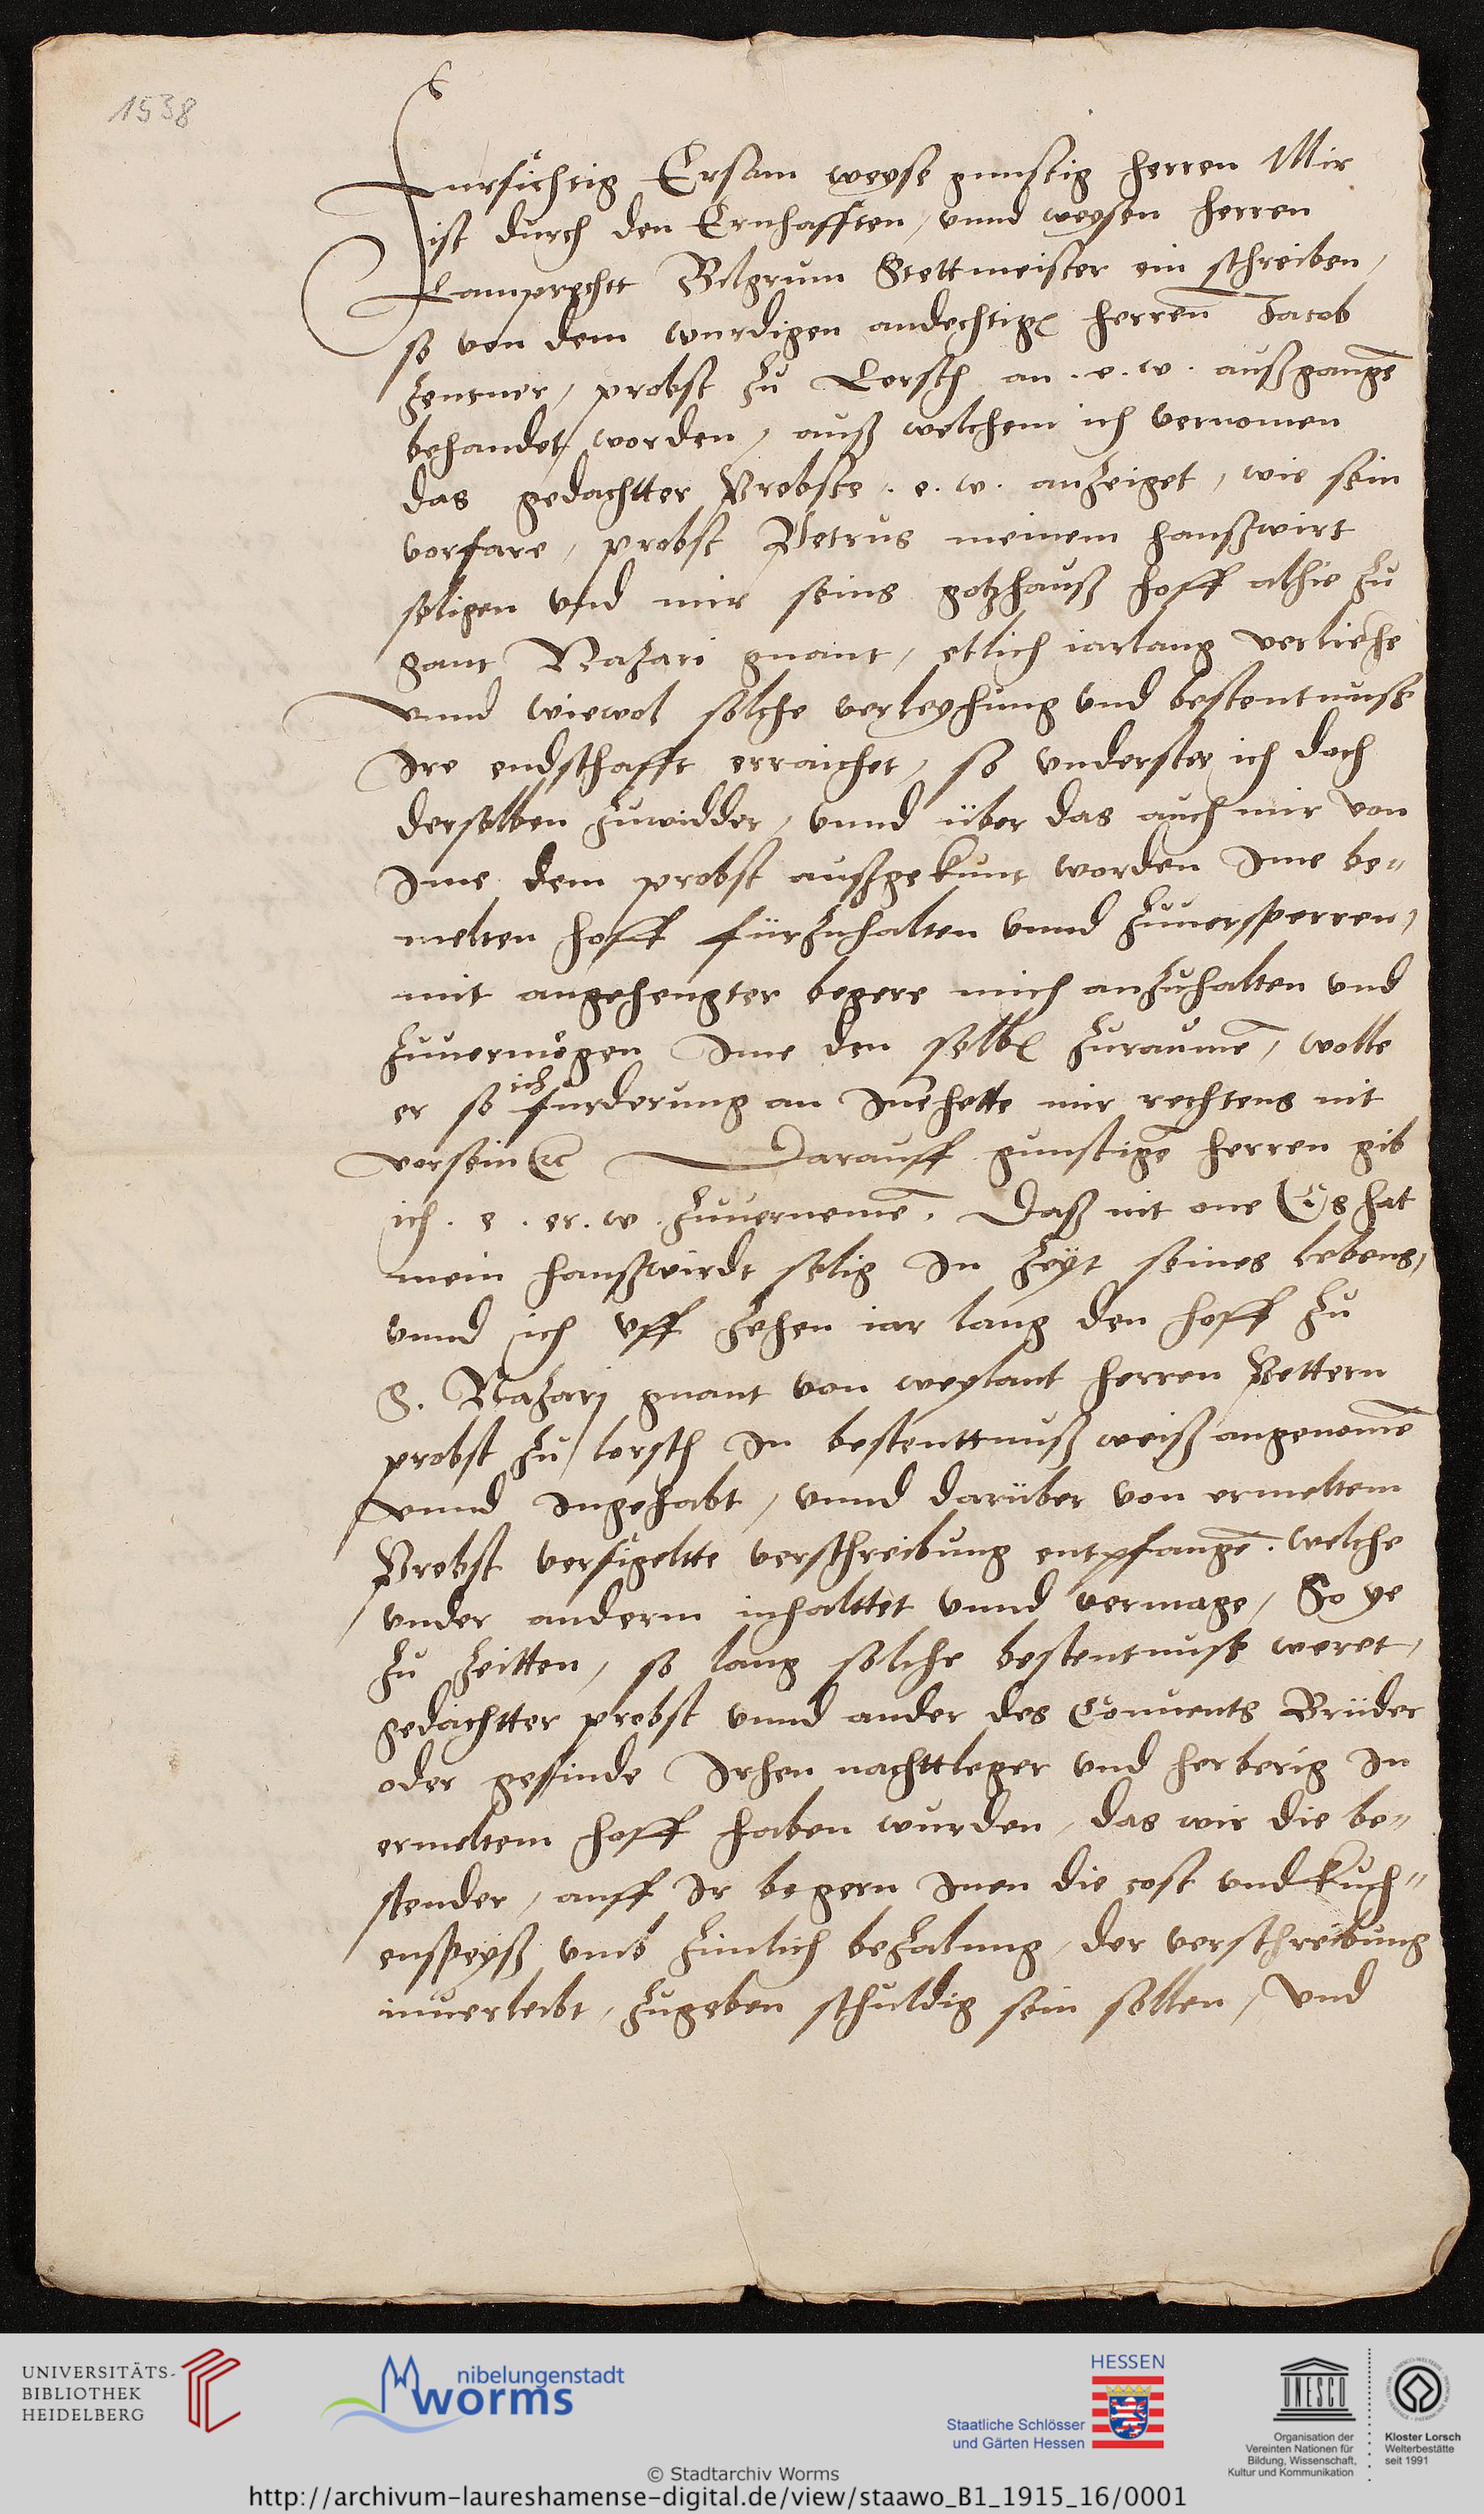 1538
Fursichtig Ersam weyse gunstig herren Mir
ist durch den Ernhafften / vnnd weysen herren
Lamprechtt Bilgrum Stettmeister ein schreiben /
so von dem wurdigen andechtigen herren Jacob
Zentner / probst zu Lorsch an . e . w . außgangē
behandet worden / auß welchem ich vernomen
das gedachtter Probste . e . w . anzeiget / wie sein
vorfare / probst Petrus meinem haußwirt
seligen vnd mir seins gotzhauß hoff alhie zu
sant Nazari gnant / etlich iarlang verliehe
vnnd wiewol solche verleyhung vnd bestentnuß
Ire endschafft erraichet / so vnderstee ich doch
derselben zuwidder / vnnd über das auch mir von
Ime dem probst außgekunt worden Ime be-
melten hoff fürzuhalten vnnd zuuersperren /
mit angehengter begere mich anzuhalten vnd
zuuermögen Ime den selben zuraumē / wolle
er so ich furderung an Ine hette mir rechtens nit
vorsein etc Darauff gunstigē herren gib
ich . e . er . w . zuuernemē . Daß nit one Es hat
mein haußwirdt selig In zeyt seines lebens /
vnnd ich vff zehen iar lang den hoff zu
S . Nazarj gnant von weylant herren Pettern
probst zu lorsch In bestenttnuß weiß angenomē
vnnd Ingehabt / vnnd darüber von ermeltem
Probst versigeltte verschreibung entpfangē . welche
vnder anderm inhalttet vnnd vermage / So ye
zu zeitten / so lang solche bestentnuß weret /
gedachtter probst vnnd ander des Conuents Brüder
oder gesinde Irhen nachttleger vnd herberig In
ermeltem hoff haben wurden / das wir die be-
stender / auff Ir begern Inen die cost vnd kuch-
enspeyß vmb zimlich bezalung / der verschreibung
inuerleibt / zugeben schuldig sein sollen / vnd
UNIVERSITÄTS-
BIBLIOTHEK
HEIDELBERG
nibelungenstadt
worms
HESSEN
Staatliche Schlösser
und Gärten Hessen
UNESCO
Organisation der
Vereinten Nationen für
Bildung, Wissenschaft,
Kultur und Kommunikation
Kloster Lorsch
Welterbestätte
seit 1991
© Stadtarchiv Worms
http://archivum-laureshamense-digital.de/view/staawo_B1_1915_16/0001